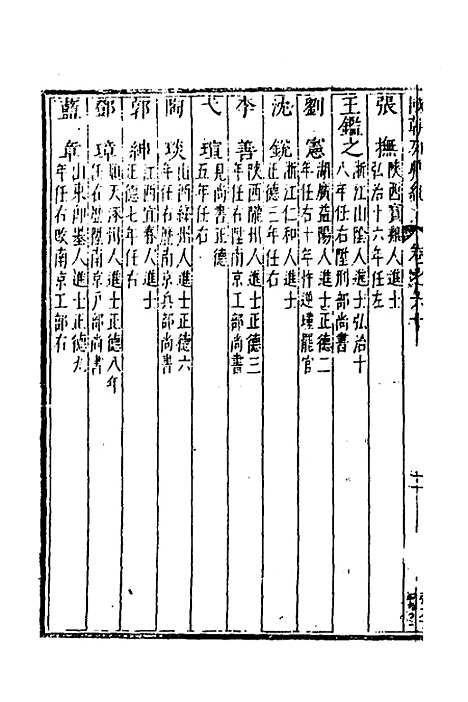 張 撫 陝西寶雞人進士
弘治十六年任左
王鑑之 浙江山陰人進士弘治十
八年任右陞刑部尚書
劉 憲 湖廣益陽人進士正德二
年任右十年忤逆瑾罷官
沈 銳 浙江仁和人進士
正德三年任右
李 善 陝西隴州人進士正德三
年任右陞南京工部尚書
弋 瑄 見尚書正德
五年任右
陶 琰 山西絳州人進士正德六
年任右歷南京兵部尚書
郭 紳 江西宜春人進士
正德七年任右
鄧 璋 順天涿州人進士正德八年
任右歷陞南京戶部尚書
藍 章 山東即墨人進士正德九
年任右改南京工部右